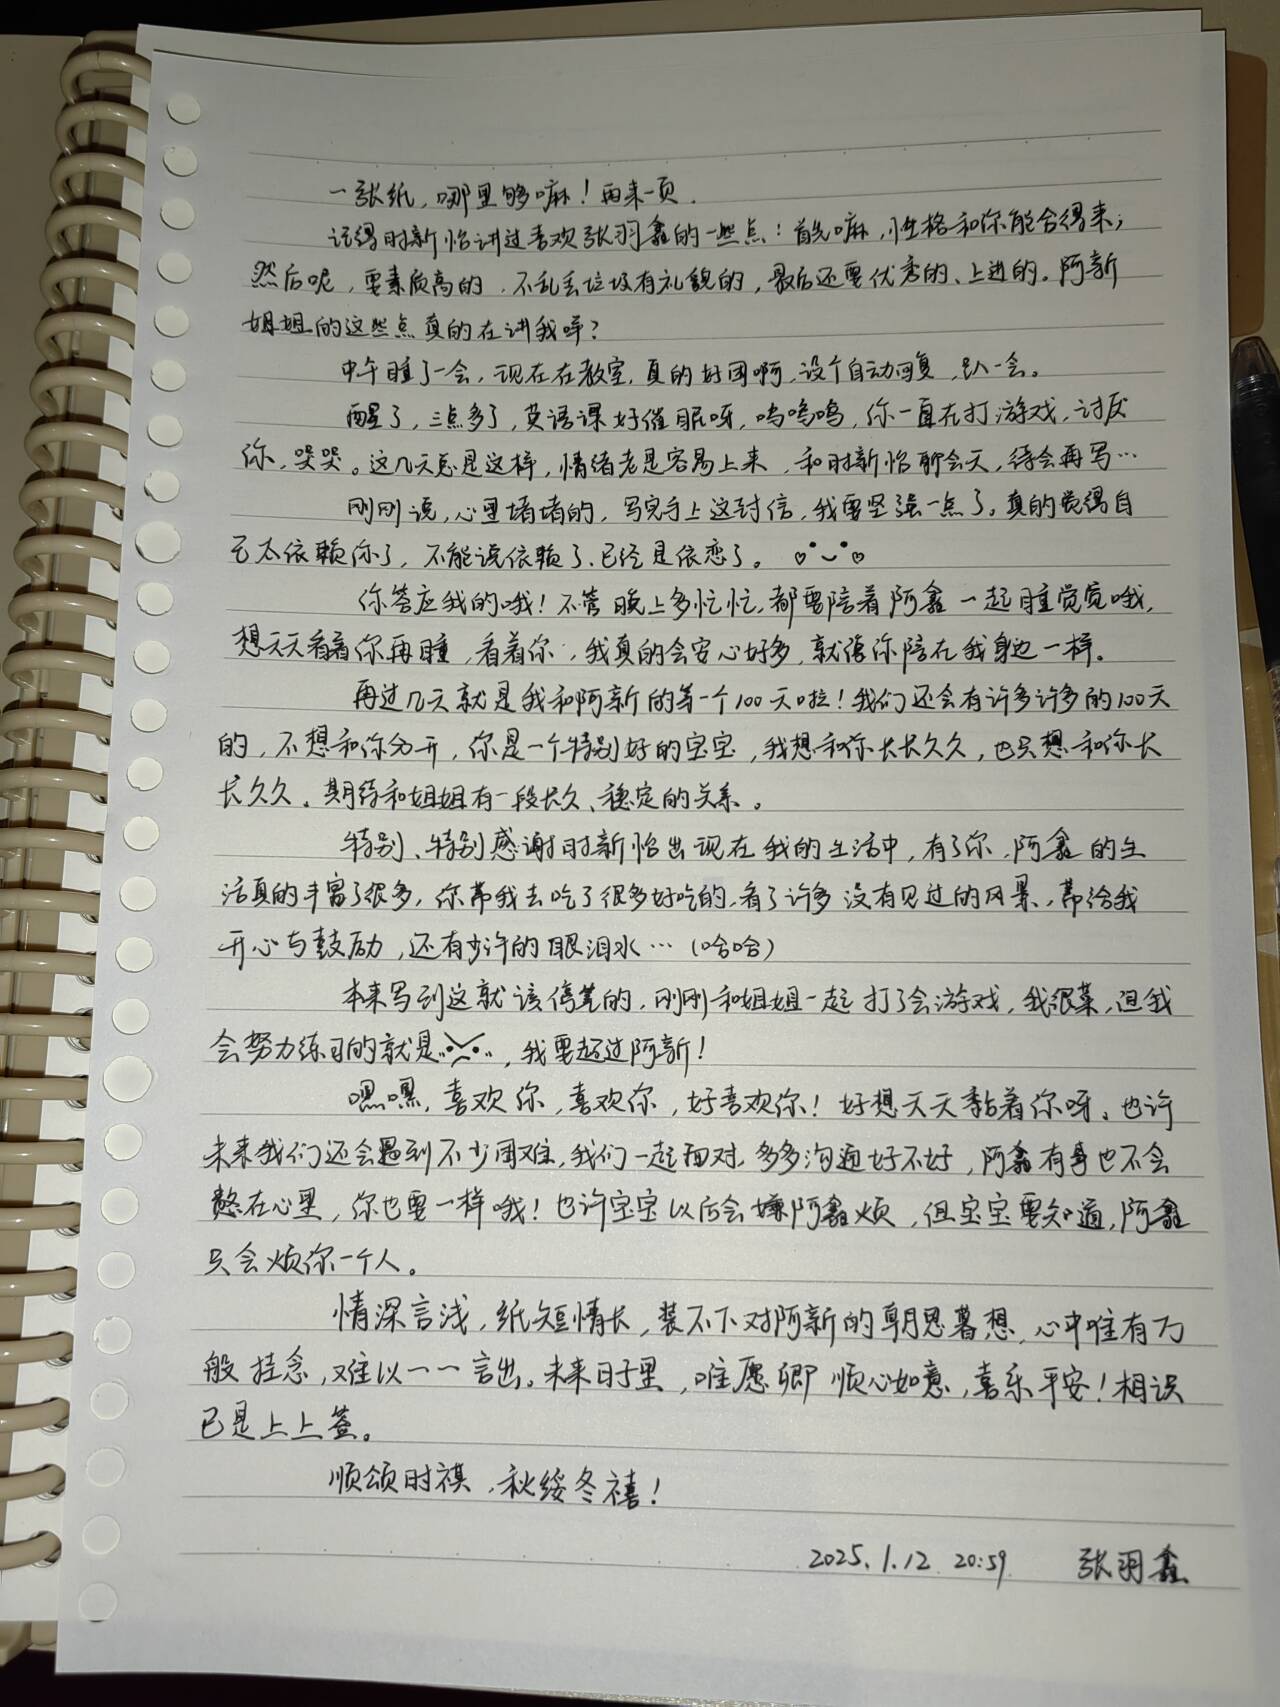 一张纸，哪里够嘛！再来一页.
记得时新怡讲过喜欢张羽鑫的一些点：首先嘛，性格和你能合得来；
然后呢，要素质高的，不乱丢垃圾有礼貌的，最后还要优秀的、上进的。阿新
姐姐的这些点真的在讲我呀？
中午睡了一会，现在在教室，真的好困啊，设个自动回复，趴一会。
醒了，三点多了，英语课好催眠呀，呜呜呜，你一直在打游戏，讨厌
你，哭哭。这几天总是这样，情绪老是容易上来，和时新怡聊会天，待会再写…
刚刚说，心里堵堵的，写完手上这封信，我要坚强一点了。真的觉得自
己太依赖你了，不能说依赖了、已经是依恋了。
你答应我的哦！不管晚上多忙忙，都要陪着阿鑫一起睡觉觉哦，
想天天看着你再睡，看着你，我真的会安心好多，就像你陪在我身边一样。
再过几天就是我和阿新的第一个100天啦！我们还会有许多许多的100天
的，不想和你分开，你是一个特别好的宝宝，我想和你长长久久，也只想和你长
长久久、期待和姐姐有一段长久、稳定的关系。
特别、特别感谢时新怡出现在我的生活中，有了你，阿鑫的生
活真的丰富了很多，你带我去吃了很多好吃的，看了许多没有见过的风景，带给我
开心与鼓励，还有少许的眼泪水…（哈哈）
本来写到这就该停笔的，刚刚和姐姐一起打了会游戏，我很菜，但我
会努力练习的就是，我要超过阿新！
嘿嘿，喜欢你，喜欢你，好喜欢你！好想天天黏着你呀、也许
未来我们还会遇到不少困难，我们一起面对，多多沟通好不好，阿鑫有事也不会
憋在心里，你也要一样哦！也许宝宝以后会嫌阿鑫烦，但宝宝要知道，阿鑫
只会烦你一个人。
情深言浅，纸短情长，装不下对阿新的朝思暮想，心中唯有万
般挂念，难以一一言出。未来日子里，唯愿卿顺心如意，喜乐平安！相识
已是上上签。
顺颂时祺，秋绥冬禧！
2025.1.12 20:59. 张羽鑫